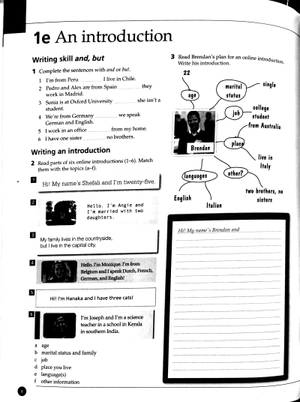 1e An introduction
Writing skill and, but
1 Complete the sentences with and or but.
1 I'm from Peru I live in Chile.
2 Pedro and Alex are from Spain they
work in Madrid.
3 Sonia is at Oxford University she isn't a
student.
4 We're from Germany we speak
German and English.
5 I work in an office from my home.
6 I have one sister no brothers.
Writing an introduction
2 Read parts of six online introductions (1–6). Match
them with the topics (a–f).
1
Hi! My name's Shefali and I'm twenty-five.
2
Hello. I'm Angie and
I'm married with two
daughters.
3
My family lives in the countryside,
but I live in the capital city.
4
Hello. I'm Monique. I'm from
Belgium and I speak Dutch, French,
German, and English!
5
Hi! I'm Hanaka and I have three cats!
6
I'm Joseph and I'm a science
teacher in a school in Kerala
in southern India.
a age
b marital status and family
c job
d place you live
e language(s)
f other information
3 Read Brendan's plan for an online introduction.
Write his introduction.
22
age
marital
status
single
job
college
student
from Australia
Brendan
place
live in
Italy
languages
other?
English
Italian
two brothers, no
sisters
Hi! My name's Brendan and